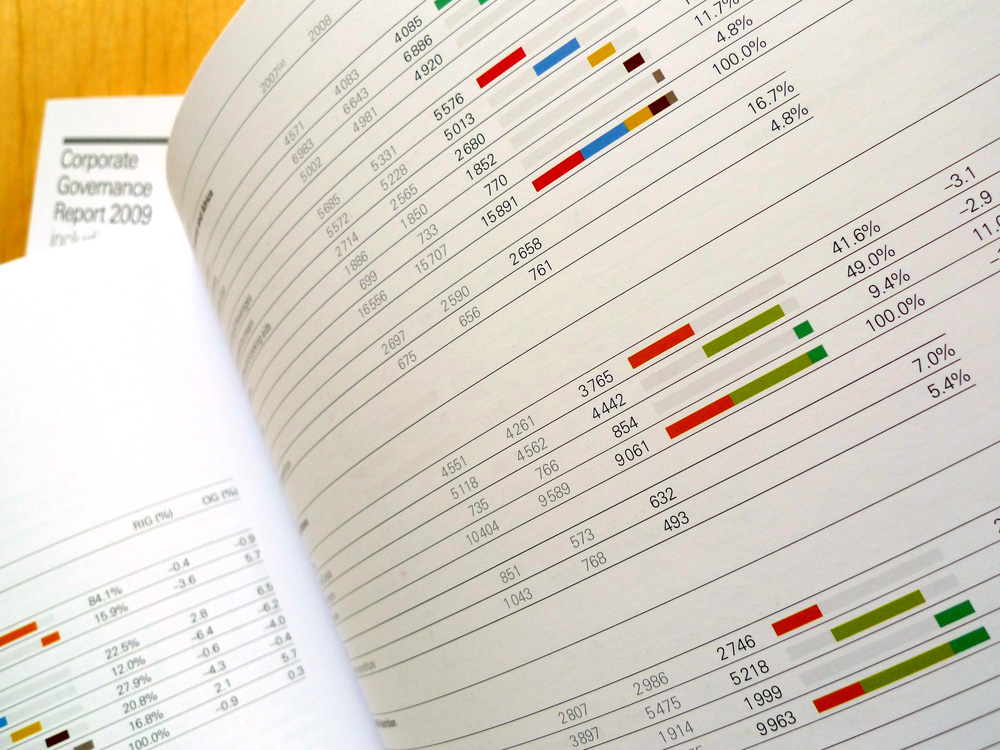 Corporate
Governance
Report 2009
2007(a) 2008
4571 4083 4085 11.7%
6983 6643 6886 4.8%
5002 4981 4920 100.0%
5685 5331 5576
5572 5228 5013
2714 2565 2680
1886 1850 1852
699 733 770 16.7%
16556 15707 15891 4.8%
2697 2590 2658
675 656 761
4551 4261 3765 41.6% –3.1
5118 4562 4442 49.0% –2.9
735 766 854 9.4%
10404 9589 9061 100.0%
851 573 632 7.0%
1043 768 493 5.4%
2807 2986 2746
3897 5475 5218
1914 1999
9963
RIG (%) OG (%)
84.1% –0.4 –0.9
15.9% –3.6 5.7
22.5% 2.8 6.5
12.0% –6.4 –6.2
27.9% –0.6 –4.0
20.8% –4.3 –0.4
16.8% 2.1 5.7
100.0% –0.9 0.3